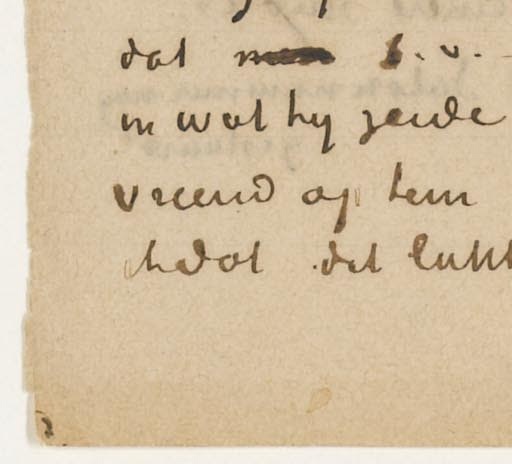 dat b.v.
in wat hy zeide
vreend op hem
hadat dat lukk